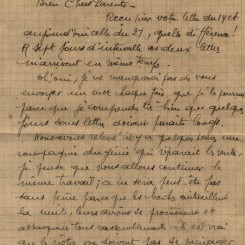 Bien Chers Parents -
Reçu hier votre lettre du 14 et
aujourd'hui celle du 21, quelle différence!
A sept jours d'intervalle vos deux lettres
m'arrivent en même temps.
Oh! oui, je ne manquerai pas de vous
envoyer un mot chaque fois que je le pourrai
parce que je comprends très bien que quelques
jours sans lettre doivent paraître longs.
Nous avons relevé il y a quelques jours une
compagnie du génie qui réparait la route,
je pense que nous allons continuer le
même travail; ça ne sera peut-être pas
sans peine parce que les boches
La nuit, leurs avions se promènent et
tous rassemblements. Il est vrai
que les nôtres ne doivent pas se ménager